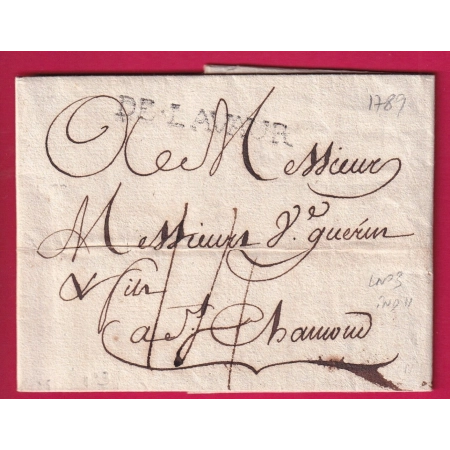 DE·LAVAUR
1789
A Messieurs
Messieurs Ve. guerin
& fils
11
a St Chamond
LN°3
ind 11